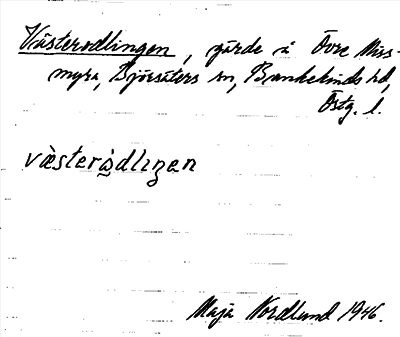 Västerodlingen, gärde å Övre Miss-
myra, Björsäters sn, Bankekinds hd,
Östg. l.
væ̀steràdlıŋen
Maja Nordlund 1946.